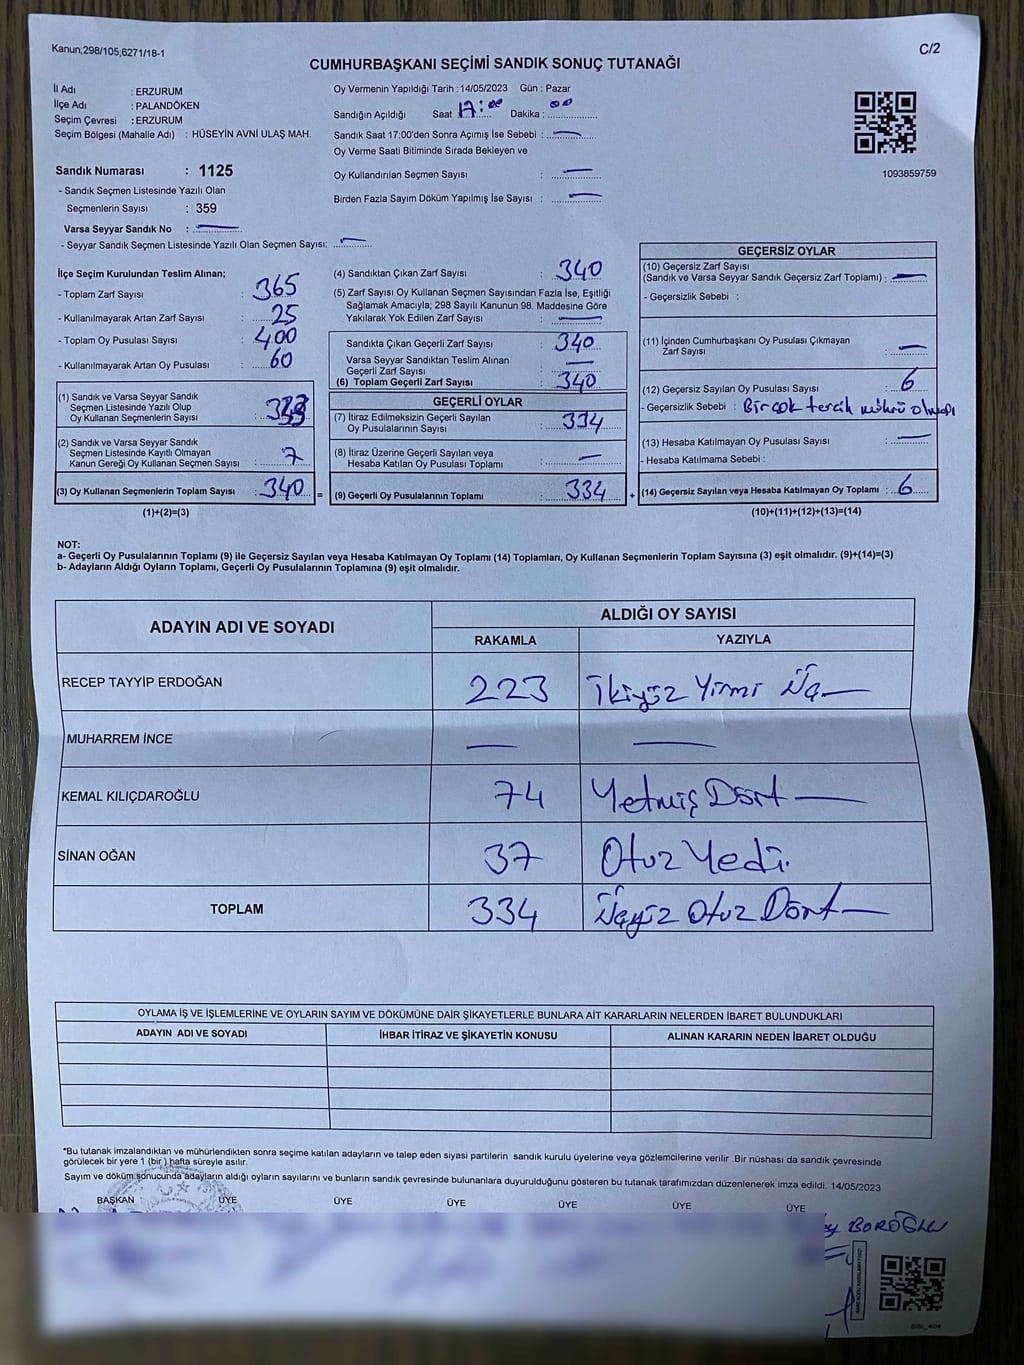 Kanun;298/105,6271/18-1
C/2
CUMHURBAŞKANI SEÇİMİ SANDIK SONUÇ TUTANAĞI
İl Adı : ERZURUM
İlçe Adı : PALANDÖKEN
Seçim Çevresi : ERZURUM
Seçim Bölgesi (Mahalle Adı) : HÜSEYİN AVNİ ULAŞ MAH.
Sandık Numarası : 1125
- Sandık Seçmen Listesinde Yazılı Olan
Seçmenlerin Sayısı : 359
Varsa Seyyar Sandık No : —
- Seyyar Sandık Seçmen Listesinde Yazılı Olan Seçmen Sayısı: —
Oy Vermenin Yapıldığı Tarih : 14/05/2023 Gün : Pazar
Sandığın Açıldığı Saat 17:00 Dakika : 00
Sandık Saat 17:00'den Sonra Açımış İse Sebebi : —
Oy Verme Saati Bitiminde Sırada Bekleyen ve
Oy Kullandırılan Seçmen Sayısı : —
Birden Fazla Sayım Döküm Yapılmış İse Sayısı : —
1093859759
İlçe Seçim Kurulundan Teslim Alınan;
- Toplam Zarf Sayısı : 365
- Kullanılmayarak Artan Zarf Sayısı : 25
- Toplam Oy Pusulası Sayısı : 400
- Kullanılmayarak Artan Oy Pusulası : 60
(1) Sandık ve Varsa Seyyar Sandık
Seçmen Listesinde Yazılı Olup
Oy Kullanan Seçmenlerin Sayısı :
(2) Sandık ve Varsa Seyyar Sandık
Seçmen Listesinde Kayıtlı Olmayan
Kanun Gereği Oy Kullanan Seçmen Sayısı : 7
(3) Oy Kullanan Seçmenlerin Toplam Sayısı : 340 =
(1)+(2)=(3)
(4) Sandıktan Çıkan Zarf Sayısı : 340
(5) Zarf Sayısı Oy Kullanan Seçmen Sayısından Fazla İse, Eşitliği
Sağlamak Amacıyla; 298 Sayılı Kanunun 98. Maddesine Göre
Yakılarak Yok Edilen Zarf Sayısı : —
Sandıkta Çıkan Geçerli Zarf Sayısı : 340
Varsa Seyyar Sandıktan Teslim Alınan
Geçerli Zarf Sayısı : —
(6) Toplam Geçerli Zarf Sayısı : 340
GEÇERLİ OYLAR
(7) İtiraz Edilmeksizin Geçerli Sayılan
Oy Pusulalarının Sayısı : 334
(8) İtiraz Üzerine Geçerli Sayılan veya
Hesaba Katılan Oy Pusulası Toplamı : —
(9) Geçerli Oy Pusulalarının Toplamı : 334 +
GEÇERSİZ OYLAR
(10) Geçersiz Zarf Sayısı
(Sandık ve Varsa Seyyar Sandık Geçersiz Zarf Toplamı) : —
- Geçersizlik Sebebi :
(11) İçinden Cumhurbaşkanı Oy Pusulası Çıkmayan
Zarf Sayısı : —
(12) Geçersiz Sayılan Oy Pusulası Sayısı : 6
- Geçersizlik Sebebi : Birçok tercih mührü olması
(13) Hesaba Katılmayan Oy Pusulası Sayısı : —
- Hesaba Katılmama Sebebi :
(14) Geçersiz Sayılan veya Hesaba Katılmayan Oy Toplamı : 6
(10)+(11)+(12)+(13)=(14)
NOT:
a- Geçerli Oy Pusulalarının Toplamı (9) ile Geçersiz Sayılan veya Hesaba Katılmayan Oy Toplamı (14) Toplamları, Oy Kullanan Seçmenlerin Toplam Sayısına (3) eşit olmalıdır. (9)+(14)=(3)
b- Adayların Aldığı Oyların Toplamı, Geçerli Oy Pusulalarının Toplamına (9) eşit olmalıdır.
ADAYIN ADI VE SOYADI
ALDIĞI OY SAYISI
RAKAMLA YAZIYLA
RECEP TAYYİP ERDOĞAN 223 İkiyüz Yirmi Üç —
MUHARREM İNCE — —
KEMAL KILIÇDAROĞLU 74 Yetmiş Dört —
SİNAN OĞAN 37 Otuz Yedi.
TOPLAM 334 Üçyüz Otuz Dört —
OYLAMA İŞ VE İŞLEMLERİNE VE OYLARIN SAYIM VE DÖKÜMÜNE DAİR ŞİKAYETLERLE BUNLARA AİT KARARLARIN NELERDEN İBARET BULUNDUKLARI
ADAYIN ADI VE SOYADI İHBAR İTİRAZ VE ŞİKAYETİN KONUSU ALINAN KARARIN NEDEN İBARET OLDUĞU
*Bu tutanak imzalandıktan ve mühürlendikten sonra seçime katılan adayların ve talep eden siyasi partilerin sandık kurulu üyelerine veya gözlemcilerine verilir .Bir nüshası da sandık çevresinde
görülecek bir yere 1 (bir ) hafta süreyle asılır.
Sayım ve döküm sonucunda adayların aldığı oyların sayılarını ve bunların sandık çevresinde bulunanlara duyurulduğunu gösteren bu tutanak tarafımızdan düzenlenerek imza edildi. 14/05/2023
BAŞKAN ÜYE ÜYE ÜYE ÜYE ÜYE ÜYE
BOROĞLU